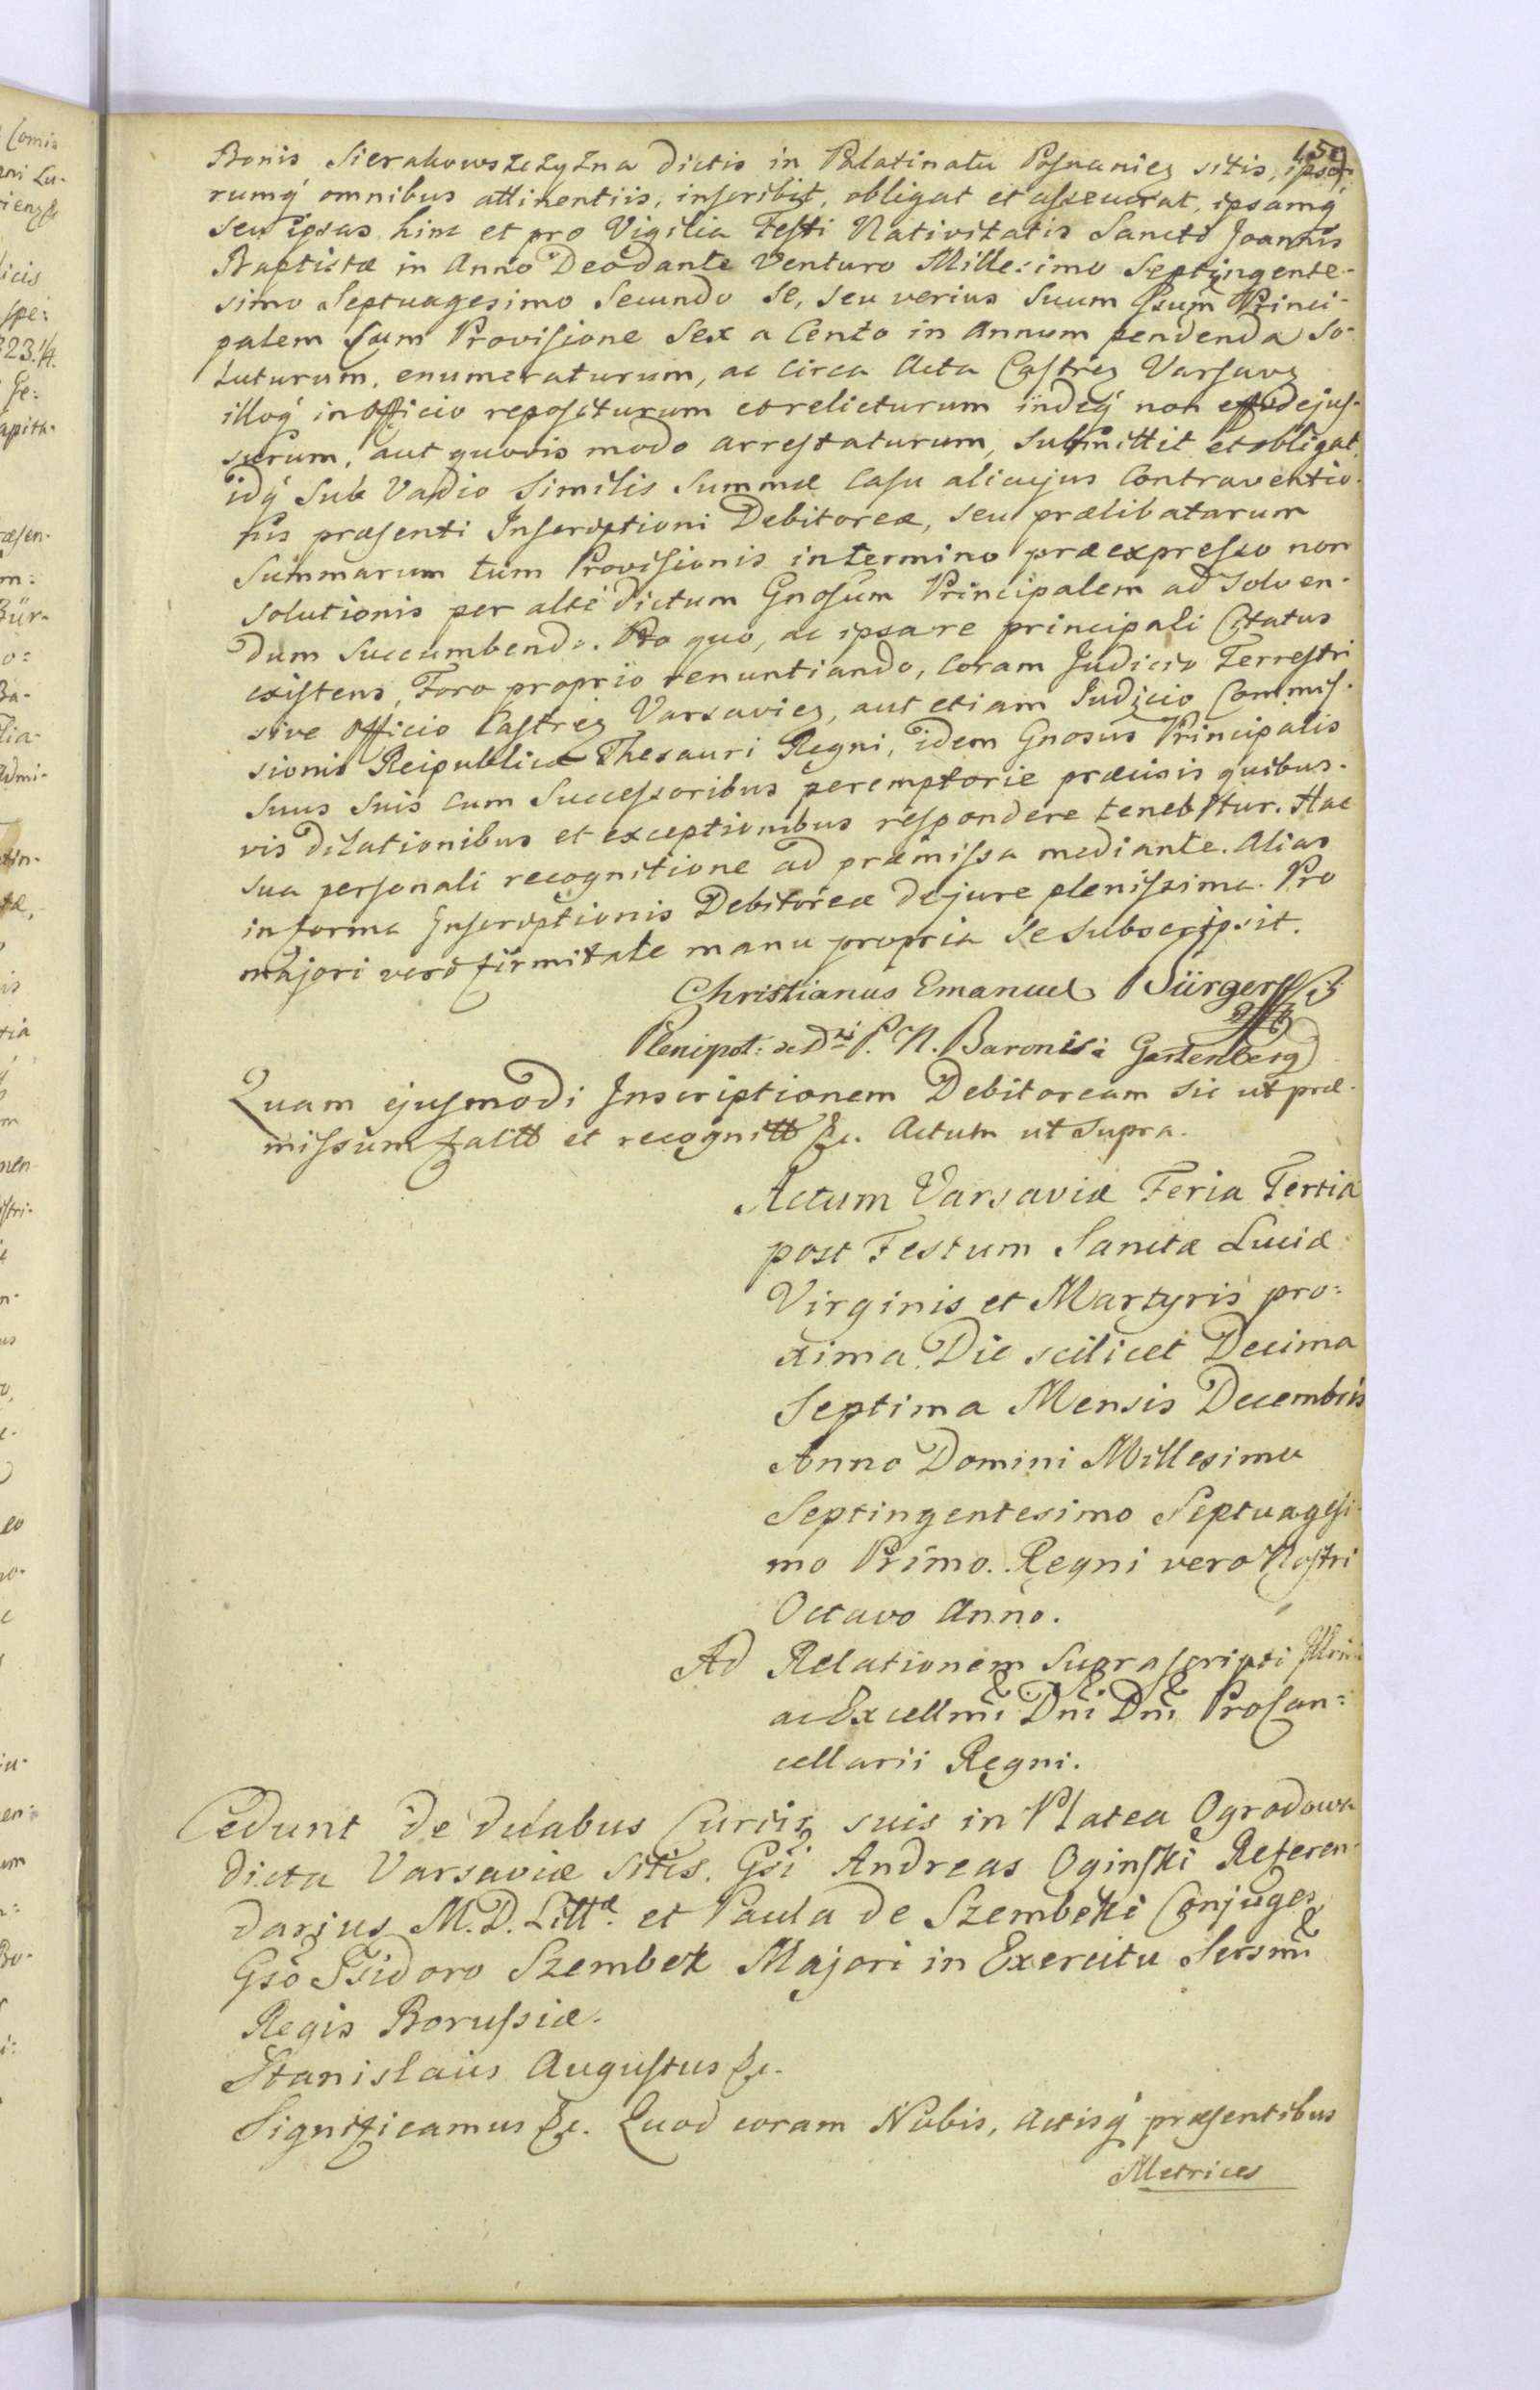 159
Bonis Sierakowszczyzna dictis in Palatinatu Posnanieñ sitis, ipso-
rumq́ omnibus attinentiis, inscribit, obligat et asseverat, ipsamq́
seu ipsas hinc et pro Vigilia Festi Nativitatis Sancti Joannis
Baptistæ in Anno Deodante Venturo Millesimo Septingente-
simo Septuagesimo Secundo se, seu verius Suum Gsum Princi-
palem Cum Provisione Sex a Cento in Annum pendenda So-
luturum, enumeraturum, ac circa Acta Castreñ Varsavỹ
illoq́ in Officio repositurum et relicturum indeq́ non
surum, aut quovis modo arrestaturum, submittit et obligat,
idq́ Sub Vadio similis Summæ Casu alicujus Contraventio-
nis præsenti Inscriptioni Debitoreæ, seu prælibatarum
Summarum tum Provisionis in termino præexpresso non
solutionis per alte dictum Gnosum Principalem ad Solven-
dum succumbendo. Pro quo, ac ipsa re principali Citatus
existens, Foro proprio renuntiando, Coram Judicio Terrestri
sive Officio Castreñ Varsavieñ, aut etiam Judicio Commis-
sionis Reipublicæ Thesauri Regni, idem Gnosus Principalis
Suus Suis cum Successoribus peremptorie præcisis quibus-
vis dilationibus et exceptionibus respondere tenebitur. Hac
sua personali recognitione ad præmissa mediante. Alias
in forma Inscriptionis Debitoreæ de jure plenissima. Pro
majori vero firmitate manu propria se subscripsit.
Christianus Emanuel Bürger
Plenipot: P. N. Baronis a Gartenberg
Quam ejusmodi Inscriptionem Debitoream sic ut præ-
missum et recognitt &c. Actum ut Supra.
Actum Varsaviæ Feria Tertia
post Festum Sanctæ Luciæ
Virginis et Martyris pro=
xima, Die scilicet Decima
Septima Mensis Decembris
Anno Domini Millesimo
Septingentesimo Septuagesi-
mo Primo. Regni vero Nostri
Octavo Anno.
Ad Relationem Suprascripti
ac Excellmi Dni Dni ProCan=
cellarii Regni.
Cedunt de duabus Curiis suis in Platea Ogrodowa
dicta Varsaviæ sitis. Gsi Andreas Oginski Referen-
darius M. D. Littæ. et Paula de Szembeki Conjuges,
Gso Isidoro Szembek Majori in Exercitu Sersmi
Regis Borussiæ.
Stanislaus Augustus &c.
Significamus &c. Quod coram Nobis, Actisq́ præsentibus
Metrices